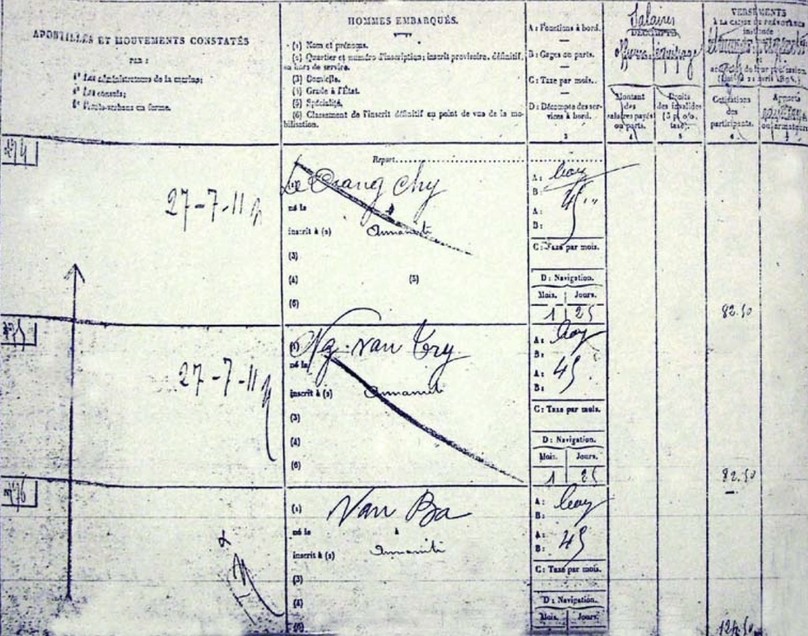 APOSTILLES ET MOUVEMENTS CONSTATÉS
PAR :
1° Les administrateurs de la marine;
2° Les consuls;
HOMMES EMBARQUÉS.
(1) Nom et prénoms.
(2) Quartier et numéro d'inscription; inscrit provisoire, définitif,
ou hors de service.
(3) Domicile.
(4) Grade à l'État.
(5) Spécialité.
(6) Classement de l'inscrit définitif au point de vue de la mobilisation.
A : Fonctions à bord.
B : Gages ou parts.
C : Taxe par mois.
D : Décompte des services à bord.
Salaires
DÉCOMPTE
Montant
des
salaires payés
ou parts.
Droits
des invalides
VERSEMENTS
À LA CAISSE DE PRÉVOYANCE
Cotisations
des
participants.
Report
27-7-11
né le
inscrit à (2) Annamite
(3)
(4) (5)
(6)
A : boy
B : 45
A :
B :
C : Taxe par mois.
D : Navigation.
Mois. Jours.
1 25
82.50
27-7-11
(1) Ng. van Try
né le
inscrit à (2) Annamite
(3)
(4)
(6)
A : boy
B :
A : 45
B :
C : Taxe par mois.
D : Navigation.
Mois. Jours.
1 25
82.50
(1) Van Ba
né le à
inscrit à (2) Annamite
(3)
(4)
(6)
A : boy
B :
A : 45
B :
C : Taxe par mois.
D : Navigation.
Mois. Jours.